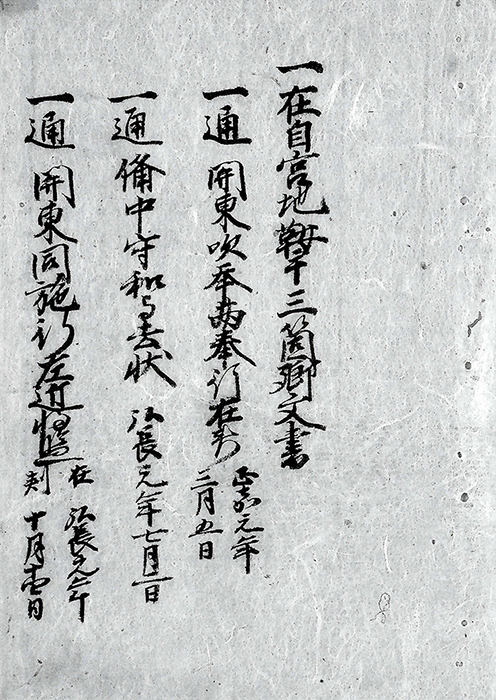 一在自宮地鞍十三箇郷文書
一通 関東吹挙両奉行在判 正嘉元年三月五日
一通 備中守和与去状 弘長元年七月二日
一通 関東同施行左近将監在判 弘長元年十月十四日